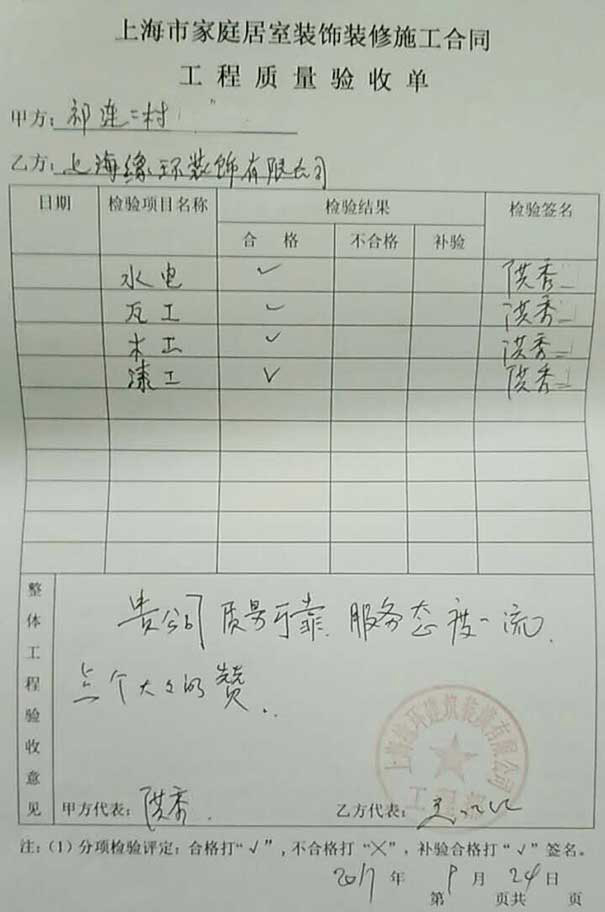 上海市家庭居室装饰装修施工合同
工程质量验收单
甲方：祁连二村
乙方：上海缘环装饰有限公司
日期 检验项目名称 检验结果 检验签名
合格 不合格 补验
水电 ✓ 洪秀
瓦工 ✓ 洪秀
木工 ✓ 洪秀
漆工 ✓ 洪秀
整体工程验收意见
贵公司质量可靠 服务态度一流.
点个大大的赞..
上海缘环建筑装潢有限公司
甲方代表：洪秀.
乙方代表：
注：(1) 分项检验评定：合格打“√”，不合格打“╳”，补验合格打“√”签名。
2017年9月24日
第 页共 页